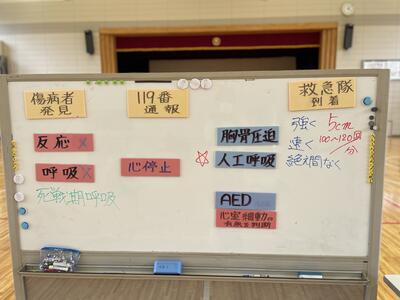 傷病者
発見
119番
通報
救急隊
到着
反応 ×
呼吸 ×
死戦期呼吸
心停止
胸骨圧迫
人工呼吸
強く 5cm
速く 100～120回/分
絶え間なく
AED
心室細動の
有無を判断